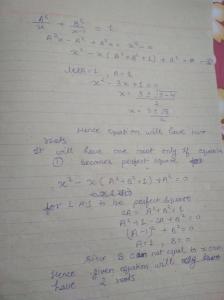 A²/x + B²/x-1 = 1
A²x - A² + B²x = x² - x
x² - x (A² + B² + 1) + A² = 0
let A=1, B=1
x² - 3x + 1 = 0
x = 3 ±
2
x = 3 ± √5
2
Hence equation will have two
roots
It will have one root only if equation
① becomes perfect square
x² - x (A² + B² + 1) + A² = 0
for LHS to be perfect square
2A = A² + B² + 1
A² + 1 - 2A + B² = 0
(A-1)² + B² = 0
A = 1, B = 0
Since B can not equal to
Hence given equation will only have
have 2 roots